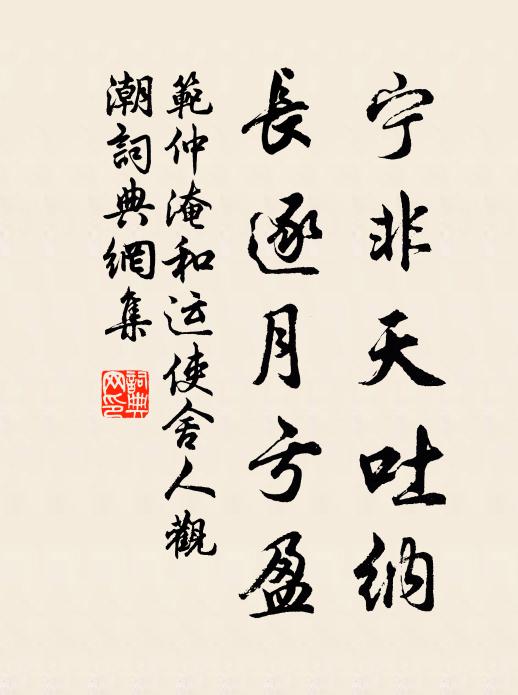 宁非天吐纳
長逐月亏盈
範仲淹和运使舍人觀
潮詞典網集
詞典网印